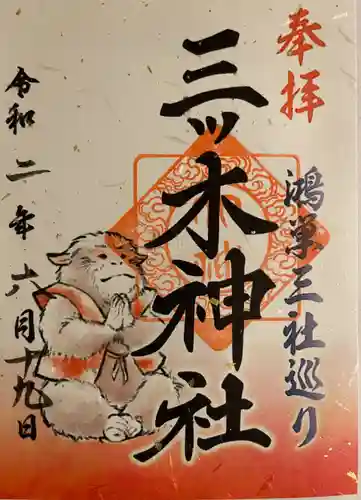 奉拝
鴻巣三社巡り
三ッ木神社
令和二年六月十九日